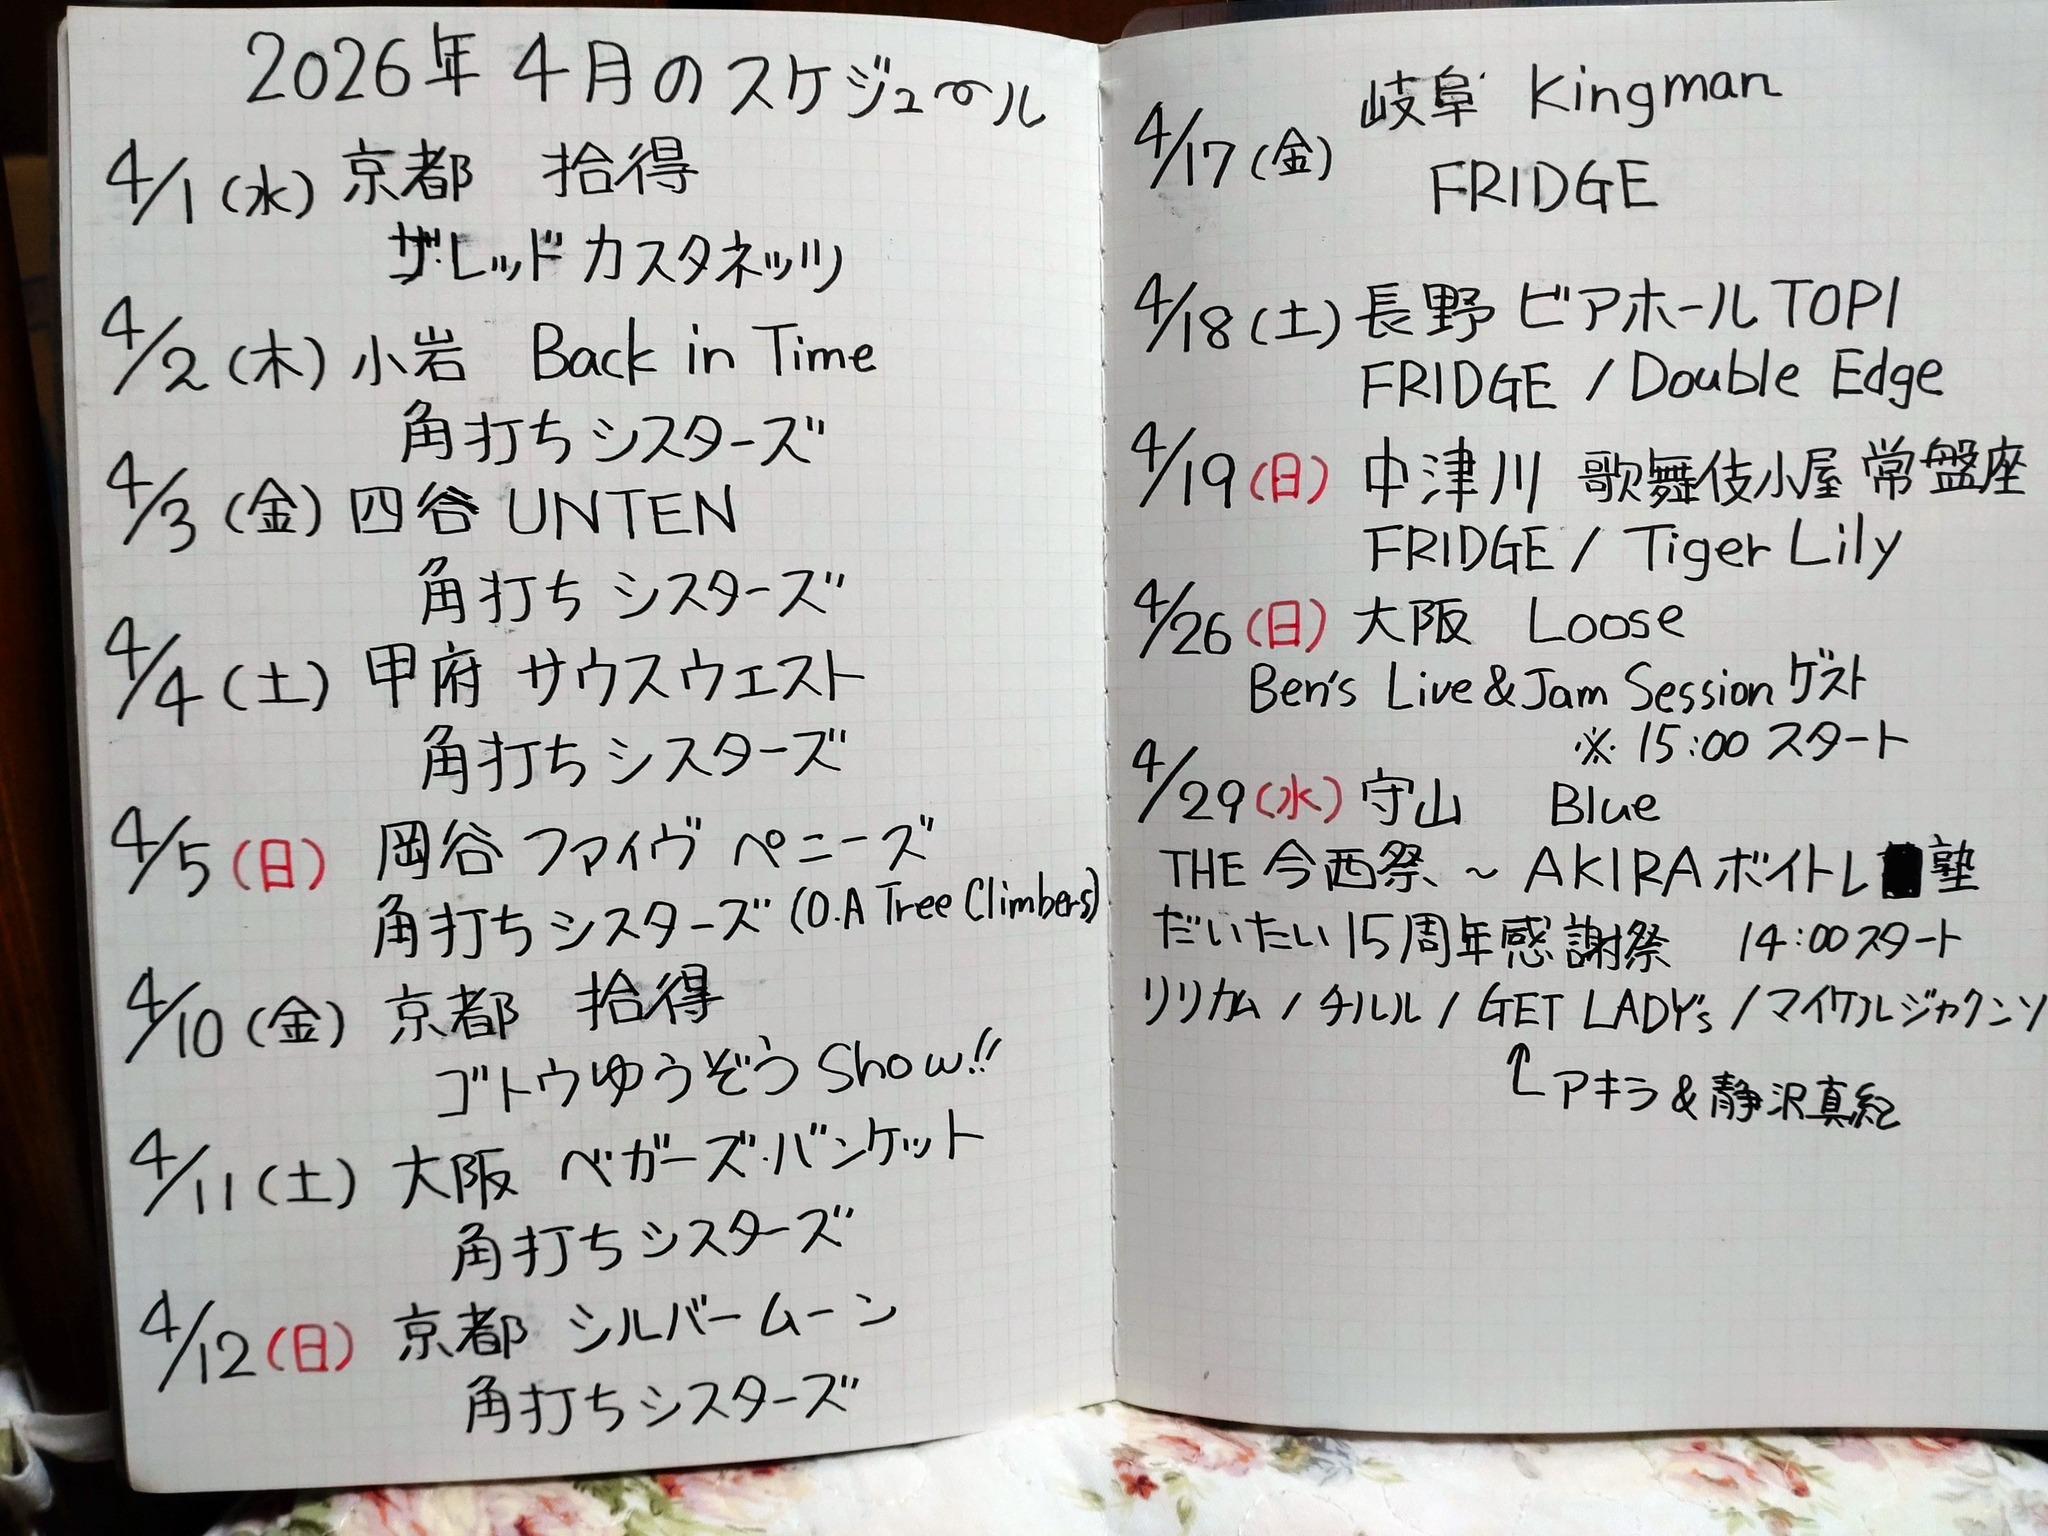 2026年4月のスケジュール
4/1(水) 京都 拾得
ザ・レッドカスタネッツ
4/2(木) 小岩 Back in Time
角打ちシスターズ
4/3(金) 四谷 UNTEN
角打ちシスターズ
4/4(土) 甲府 サウスウエスト
角打ちシスターズ
4/5(日) 岡谷 ファイヴ ペニーズ
角打ちシスターズ (O.A Tree Climbers)
4/10(金) 京都 拾得
ゴトウゆうぞう Show!!
4/11(土) 大阪 ベガーズ・バンケット
角打ちシスターズ
4/12(日) 京都 シルバームーン
角打ちシスターズ
4/17(金) 岐阜 Kingman
FRIDGE
4/18(土) 長野 ビアホールTOPI
FRIDGE / Double Edge
4/19(日) 中津川 歌舞伎小屋 常盤座
FRIDGE / Tiger Lily
4/26(日) 大阪 Loose
Ben's Live & Jam Session ゲスト
※ 15:00 スタート
4/29(水) 守山 Blue
THE 今西祭 ~ AKIRA ボイトレ塾
だいたい15周年感謝祭 14:00スタート
リリカム / チルル / GET LADY's / マイケルジャクンソ
↑アキラ & 静沢真紀